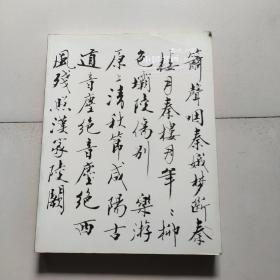 簫聲咽秦娥夢斷秦
樓月秦樓月年〻柳
色灞陵傷別 樂游
原上清秋節咸陽古
道音塵絕音塵絕西
風殘照漢家陵闕